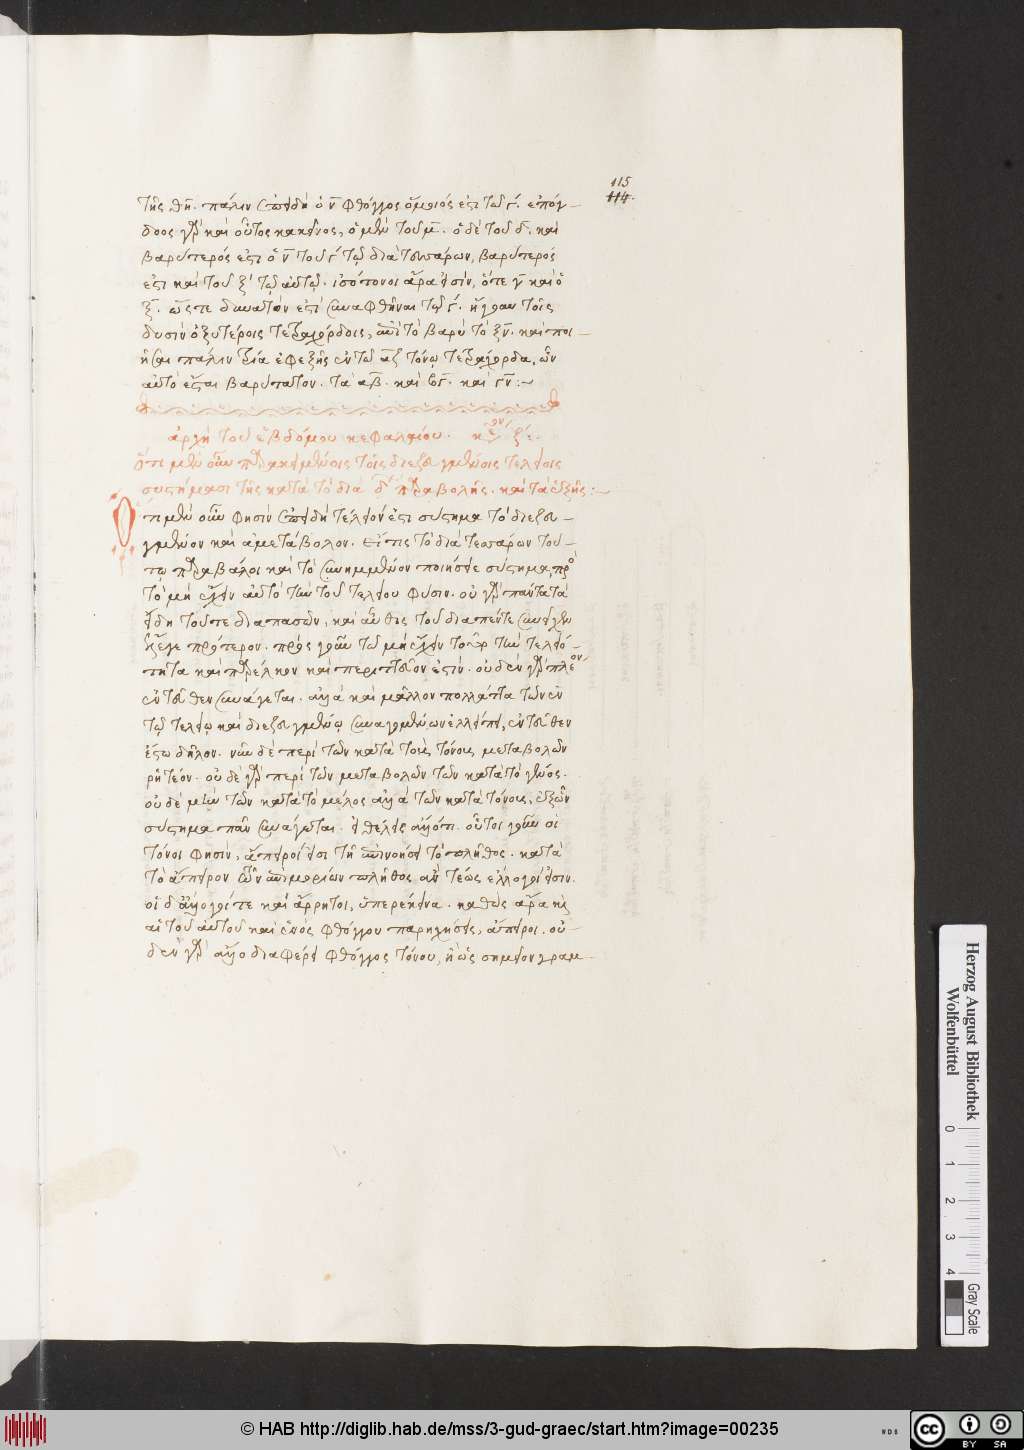 115
114.
τῆς θη̄. πάλιν ἐπειδὴ ὁ ν̄ φθόγγος ὅμοιός ἐστι τῷ γ̄. ἐπόγ-
δοος γὰρ καὶ οὗτος κἀκεῖνος, ὁ μὲν τοῦ μ̄. ὁ δὲ τοῦ δ̄. καὶ
βαρύτερός ἐστι ὁ ν̄ τοῦ γ̄ τῷ διὰ τεσσάρων, βαρύτερός
ἐστι καὶ τοῦ ξ̄ τῷ αὐτῷ. ἰσότονοι ἄρα εἰσὶν, ὅτε ν̄ καὶ ὁ
ξ̄. ὥστε δυνατόν ἐστι συναφθῆναι τῷ γ̄. ἤγουν τοῖς
δυσὶν ὀξυτέροις τετραχόρδοις, ἀντὶ τὸ βαρὺ τὸ ξν̄. καὶ ποι-
ῆσαι πάλιν τρία ἐφεξῆς ἐν τῷ αζ τόνῳ τετράχορδα, ὧν
αὐτὸ ἔσται βαρύτατον. τὰ αβ̄. καὶ βγ̄. καὶ γν̄ :~
ἀρχὴ τοῦ ἑβδόμου κεφαλαίου. κείμενον ζ′:-
ὅτι μὲν οὖν παρακειμένοις τοῖς διεζευγμένοις τελείοις
συστήμασι τῆς κατὰ τὸ διὰ δ′ παραβολῆς. καὶ τὰ ἑξῆς :~
Ὅτι μὲν οὖν φησὶν ἐπειδὴ τέλειόν ἐστι σύστημα τὸ διεζευ-
γμένον καὶ ἀμετάβολον. εἴ τις τὸ διὰ τεσσάρων τού-
τῳ παραβάλοι καὶ τὸ συνημμένον ποιήσειε σύστημα, πρὸς
τὸ μὴ ἔχειν αὐτὸ τὴν τοῦ τελείου φύσιν. οὐ γὰρ πάντα τὰ
εἴδη τοῦτε διαπασῶν, καὶ αὖθις τοῦ διαπέντε συνέχειν
ἔλεγε πρότερον. πρὸς γοῦν τῷ μὴ ἔχειν τοῦτο τὴν τελειό-
τητα καὶ παρέλκον καὶ περιττόν ἐστιν. οὐδὲν γὰρ πλέον
ἐντεῦθεν συνάγεται. ἀλλὰ καὶ μᾶλλον πολλὰ τὰ τῶν ἐν
τῷ τελείῳ καὶ διεζευγμένῳ συναγομένων ἐλλείπει, ἐντεῦθεν
ἔστω δῆλον. νῦν δὲ περὶ τῶν κατὰ τοὺς τόνους μεταβολῶν
ῥητέον. οὐδὲ γὰρ περὶ τῶν μεταβολῶν τῶν κατὰ τὸ γένος.
οὐδὲ μὴν τῶν κατὰ τὸ μέλος ἀλλὰ τῶν κατὰ τόνους, ἐξ ὧν
σύστημα πᾶν συνάγεται. ἐθέλεις ἀλλ' ὅτι. οὗτοι γοῦν οἱ
τόνοι φησὶν, ἄπειροί εἰσι τῇ ἐπινοήσει τὸ πλῆθος. κατὰ
τὸ ἄπειρον τῶν ἐπιμορίων πλῆθος ἂν τέως ἔλλογοί εἰσιν.
οἱ δ' ἄλογοί τε καὶ ἄρρητοι, ὑπερέκεινα. καθὼς ἄρα καὶ
αἱ τοῦ αὐτοῦ καὶ ἑνὸς φθόγγου παρηχήσεις, ἄπειροι. οὐ-
δὲν γὰρ ἄλλο διαφέρει φθόγγος τόνου, ἢ ὡς σημεῖον γραμ-
Herzog August Bibliothek
Wolfenbüttel
0 1 2 3 4
Gray Scale
© HAB http://diglib.hab.de/mss/3-gud-graec/start.htm?image=00235
WDB
cc BY SA